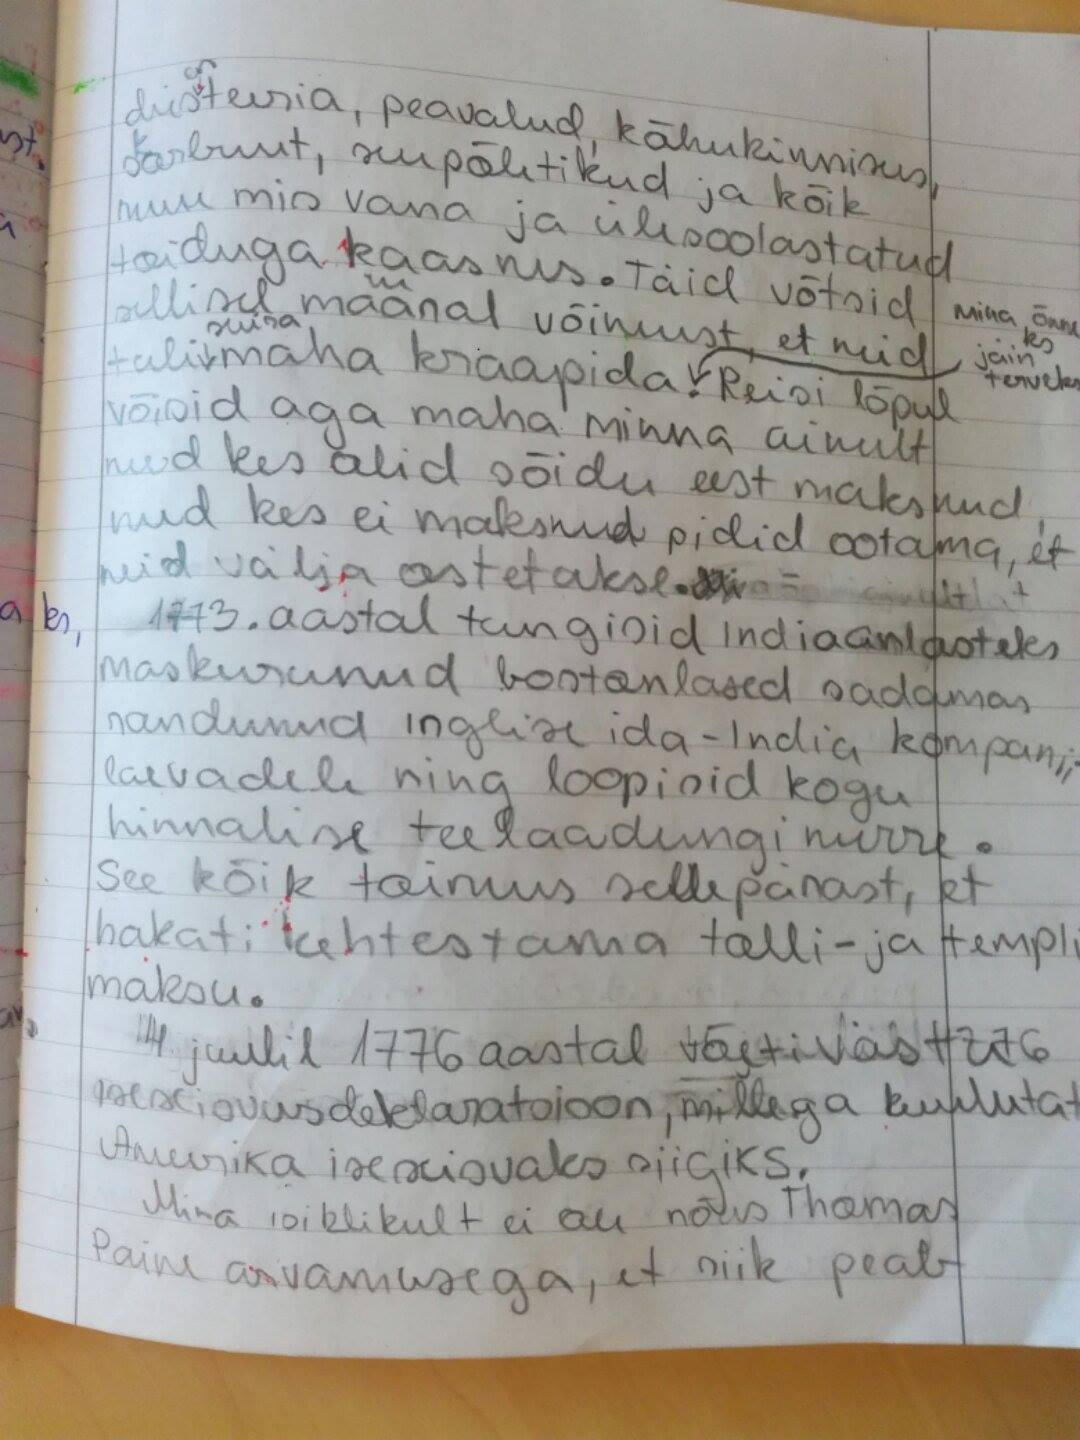 düsenteeria, peavalud, kõhukinnisus,
skorbuut, suupõletikud ja kõik
muu mis vana ja ülesoolastatud
toiduga kaasnes. Täid võtsid
sellisel määral võimust, et neid
tuli suisa maha kraapida. Reisi lõpul
mina õnne
ks
jäin
terveks
võisid aga maha minna ainult
need kes olid sõidu eest maksnud,
need kes ei maksnud pidid ootama, et
neid välja ostetakse.
1773. aastal tungisid indiaanlasteks
maskeerunud bostonlased sadamas
randunud inglise ida-India kompanii
laevadele ning loopisid kogu
hinnalise teelaadungi merre.
See kõik toimus sellepärast, et
hakati kehtestama tolli-ja templi
maksu.
4. juulil 1776 aastal võeti vastu
iseseisvusdeklaratsioon, millega kuulutat
Ameerika iseseisvaks riigiks.
Mina isiklikult ei ole nõus Thomas
Paine arvamusega, et riik peab